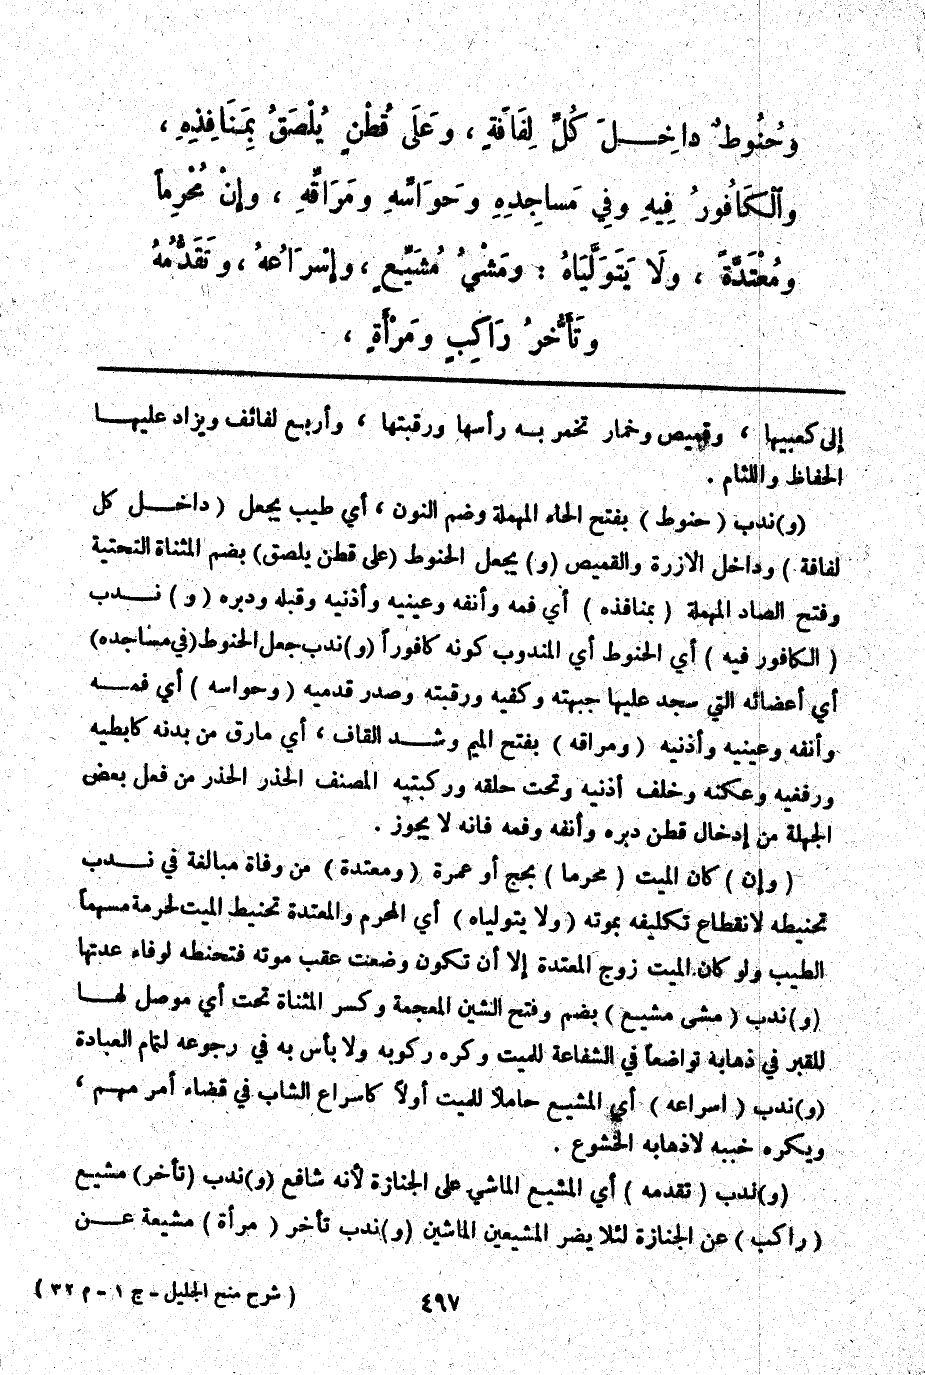 وَحُنُوطٌ داخِـــلَ كُلِّ لِفَافَةٍ ، وَعَلَى قُطْنٍ يُلْصَقُ بِمَنَافِذِهِ ،
وٱلْكَافُورُ فِيهِ وفِي مَساجِدِهِ وَحَوَاسِّهِ ومَرَاقِّهِ ، وإنْ مُحْرِماً
ومُعْتَدَّةً ، ولَا يَتَوَلَّيَاهُ : ومَشْيُ مُشَيِّعٍ ، وإسْرَاعُهُ ، وتَقَدُّمُهُ
وتَأَخُّرُ رَاكِبٍ ومَرْأَةٍ ،
إلى كعبيها ، وقميص وخمار تخمر بـه رأسها ورقبتها ، وأربع لفائف ويزاد عليهـا
الحفاظ واللثام .
(و)ندب ( حنوط ) بفتح الحاء المهملة وضم النون ، أي طيب يجعل ( داخـــل كل
لفافة ) وداخل الازرة والقميص (و) يجعل الحنوط (على قطن يلصق) بضم المثناة التحتية
وفتح الصاد المهملة ( بمنافذه ) أي فمه وأنفه وعينيه وأذنيه وقبله ودبره ( و ) نـــدب
( الكافور فيه ) أي الحنوط أي المندوب كونه كافوراً (و)ندب جعل الحنوط (في مساجده)
أي أعضائه التي سجد عليها جبهته وكفيه ورقبته وصدر قدميه ( وحواسه ) أي فمـــه
وأنفه وعينيه وأذنيه ( ومراقه ) بفتح الميم وشـــد القاف ، أي مارق من بدنه كابطيه
ورفغيه وعكنه وخلف أذنيه وتحت حلقه وركبتيه المصنف الحذر الحذر من فعل بعض
الجهلة من إدخال قطن دبره وأنفه وفمه فانه لا يجوز .
( وإن ) كان الميت ( محرما ) بحج أو عمرة ( ومعتدة ) من وفاة مبالغة في نـــدب
تحنيطه لانقطاع تكليفه بموته ( ولا يتولياه ) أي المحرم والمعتدة تحنيط الميت لحرمة مسهما
الطيب ولو كان الميت زوج المعتدة إلا أن تكون وضعت عقب موته فتحنطه لوفاء عدتها
(و)ندب ( مشى مشيـع ) بضم وفتح الشين المعجمة وكسر المثناة تحت أي موصل لهـا
للقبر في ذهابه تواضعاً في الشفاعة للميت وكره ركوبه ولا بأس به في رجوعه لتمام العبادة
(و)ندب ( اسراعه ) أي المشيـع حاملاً للميت أولاً كاسراع الشاب في قضاء أمر مهـم ،
ويكره خببه لاذهابه الخشوع .
(و)ندب ( تقدمه ) أي المشيـع الماشي على الجنازة لأنه شافع (و)ندب (تأخر) مشيـع
( راكب ) عن الجنازة لئلا يضر المشيعين الماشين (و)ندب تأخر ( مرأة ) مشيعة عـــن
٤٩٧
( شرح منح الجليل - ج ١ - م ٣٢ )